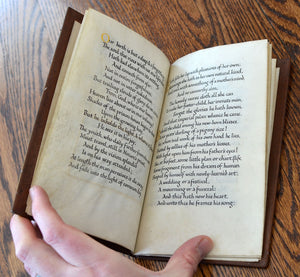 Our birth is but a sleep & a forgetting:
The soul that rises with us, our life's
Hath had elsewhere its setting,
And cometh from afar:
Not in entire forgetfulness,
And not in utter nakedness,
But trailing clouds of glory do we
From God, who is our home:
Heaven lies about us in our infancy!
Shades of the prison-house begin to
Upon the growing boy,
But he beholds the light, and whence
He sees it in his joy;
The youth, who daily farther from
Must travel, still is nature's priest,
And by the vision splendid
Is on his way attended;
At length the man perceives it die away,
And fade into the light of common day.
fills her lap with pleasures of her own;
she hath in her own natural kind,
with something of a mother's mind,
And no unworthy aim,
The homely nurse doth all she can
To make her foster-child, her inmate man,
Forget the glories he hath known,
that imperial palace whence he came.
the child among his new-born blisses,
darling of a pigmy size!
work of his own hand he lies,
by sallies of his mother's kisses,
light upon him from his father's eyes!
at his feet, some little plan or chart,
fragment from his dream of human
by himself with newly-learned art;
A wedding or a festival,
A mourning or a funeral;
And this hath now his heart,
And unto this he frames his song;